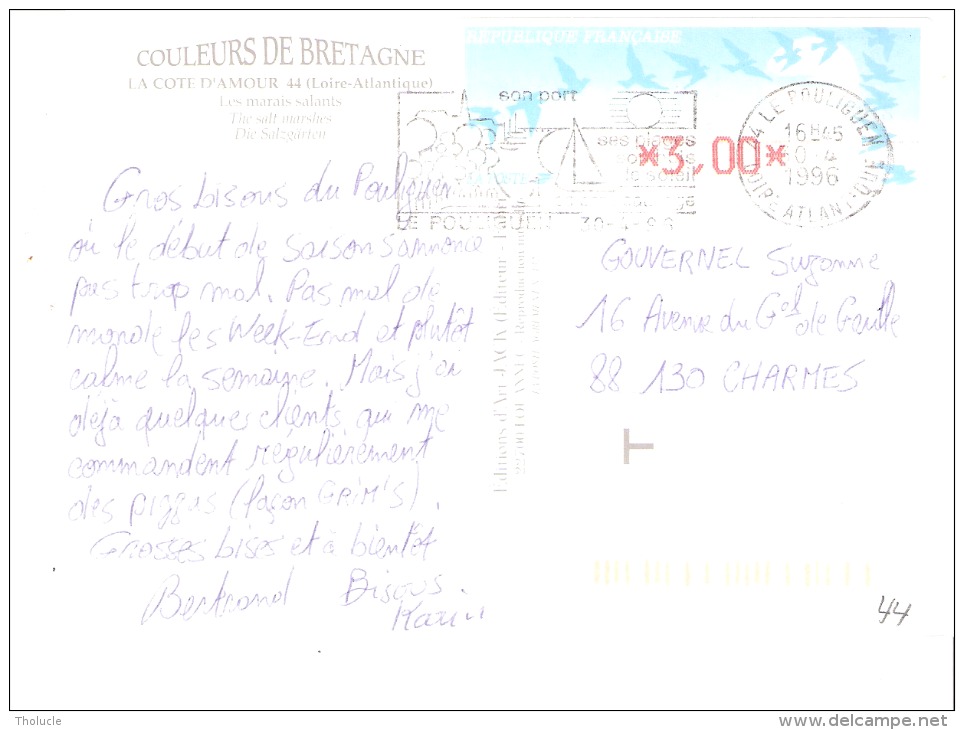 COULEURS DE BRETAGNE
LA COTE D'AMOUR 44 (Loire-Atlantique)
Les marais salants
The salt marshes
Die Salzgärten
RÉPUBLIQUE FRANÇAISE
son port
ses
*3,00*
LE POULIGUEN 30-4-96
44 LE POULIGUEN
16H45
1996
LOIRE ATLANTIQUE
Gros bisous du Pouliguen
où le début de saison s'annonce
pas trop mal. Pas mal de
monde les Week-End et plutôt
calme la semaine. Mais j'ai
déjà quelques clients qui me
commandent régulièrement
des pizzas (façon GRIM'S).
Grosses bises et à bientôt
Bertrand Bisous.
Karin
GOUVERNEL Suzanne
16 Avenue du Gal de Gaulle
88 130 CHARMES
Editions d'Art JACK
T
44
Tholucle
www.delcampe.net